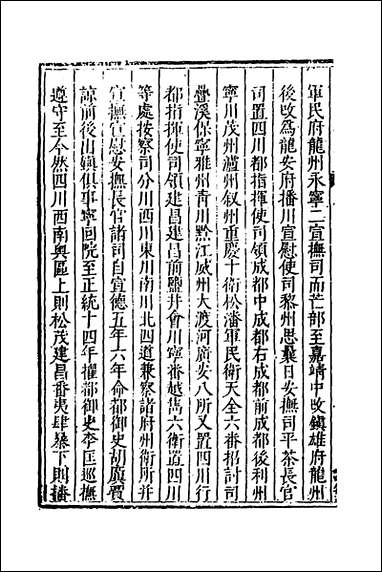 軍民府龍州永寧二宣撫司而芒部至嘉靖中改鎮雄府龍州
後改爲龍安府播川宣慰使司黎州思曩日安撫司平茶長官
司置四川都指揮使司領成都中成都右成都前成都後利州
寧川茂州瀘州叙州重慶十衛松潘軍民衛天全六番招討司
疊溪保寧雅州青川黔江威州大渡河廣安八所又置四川行
都指揮使司領建昌建昌前鹽井會川寧番越嶲六衛置四川
等處按察司分川西川東川南川北四道兼察諸府州衛所并
宣撫宣慰安撫長官諸司自宣德五年六年命都御史胡廙賈
諒前後出鎮俱事寧回院至正統十四年擢都御史李匡巡撫
遵守至今然四川西南奥區上則松茂建昌番夷肆暴下則播